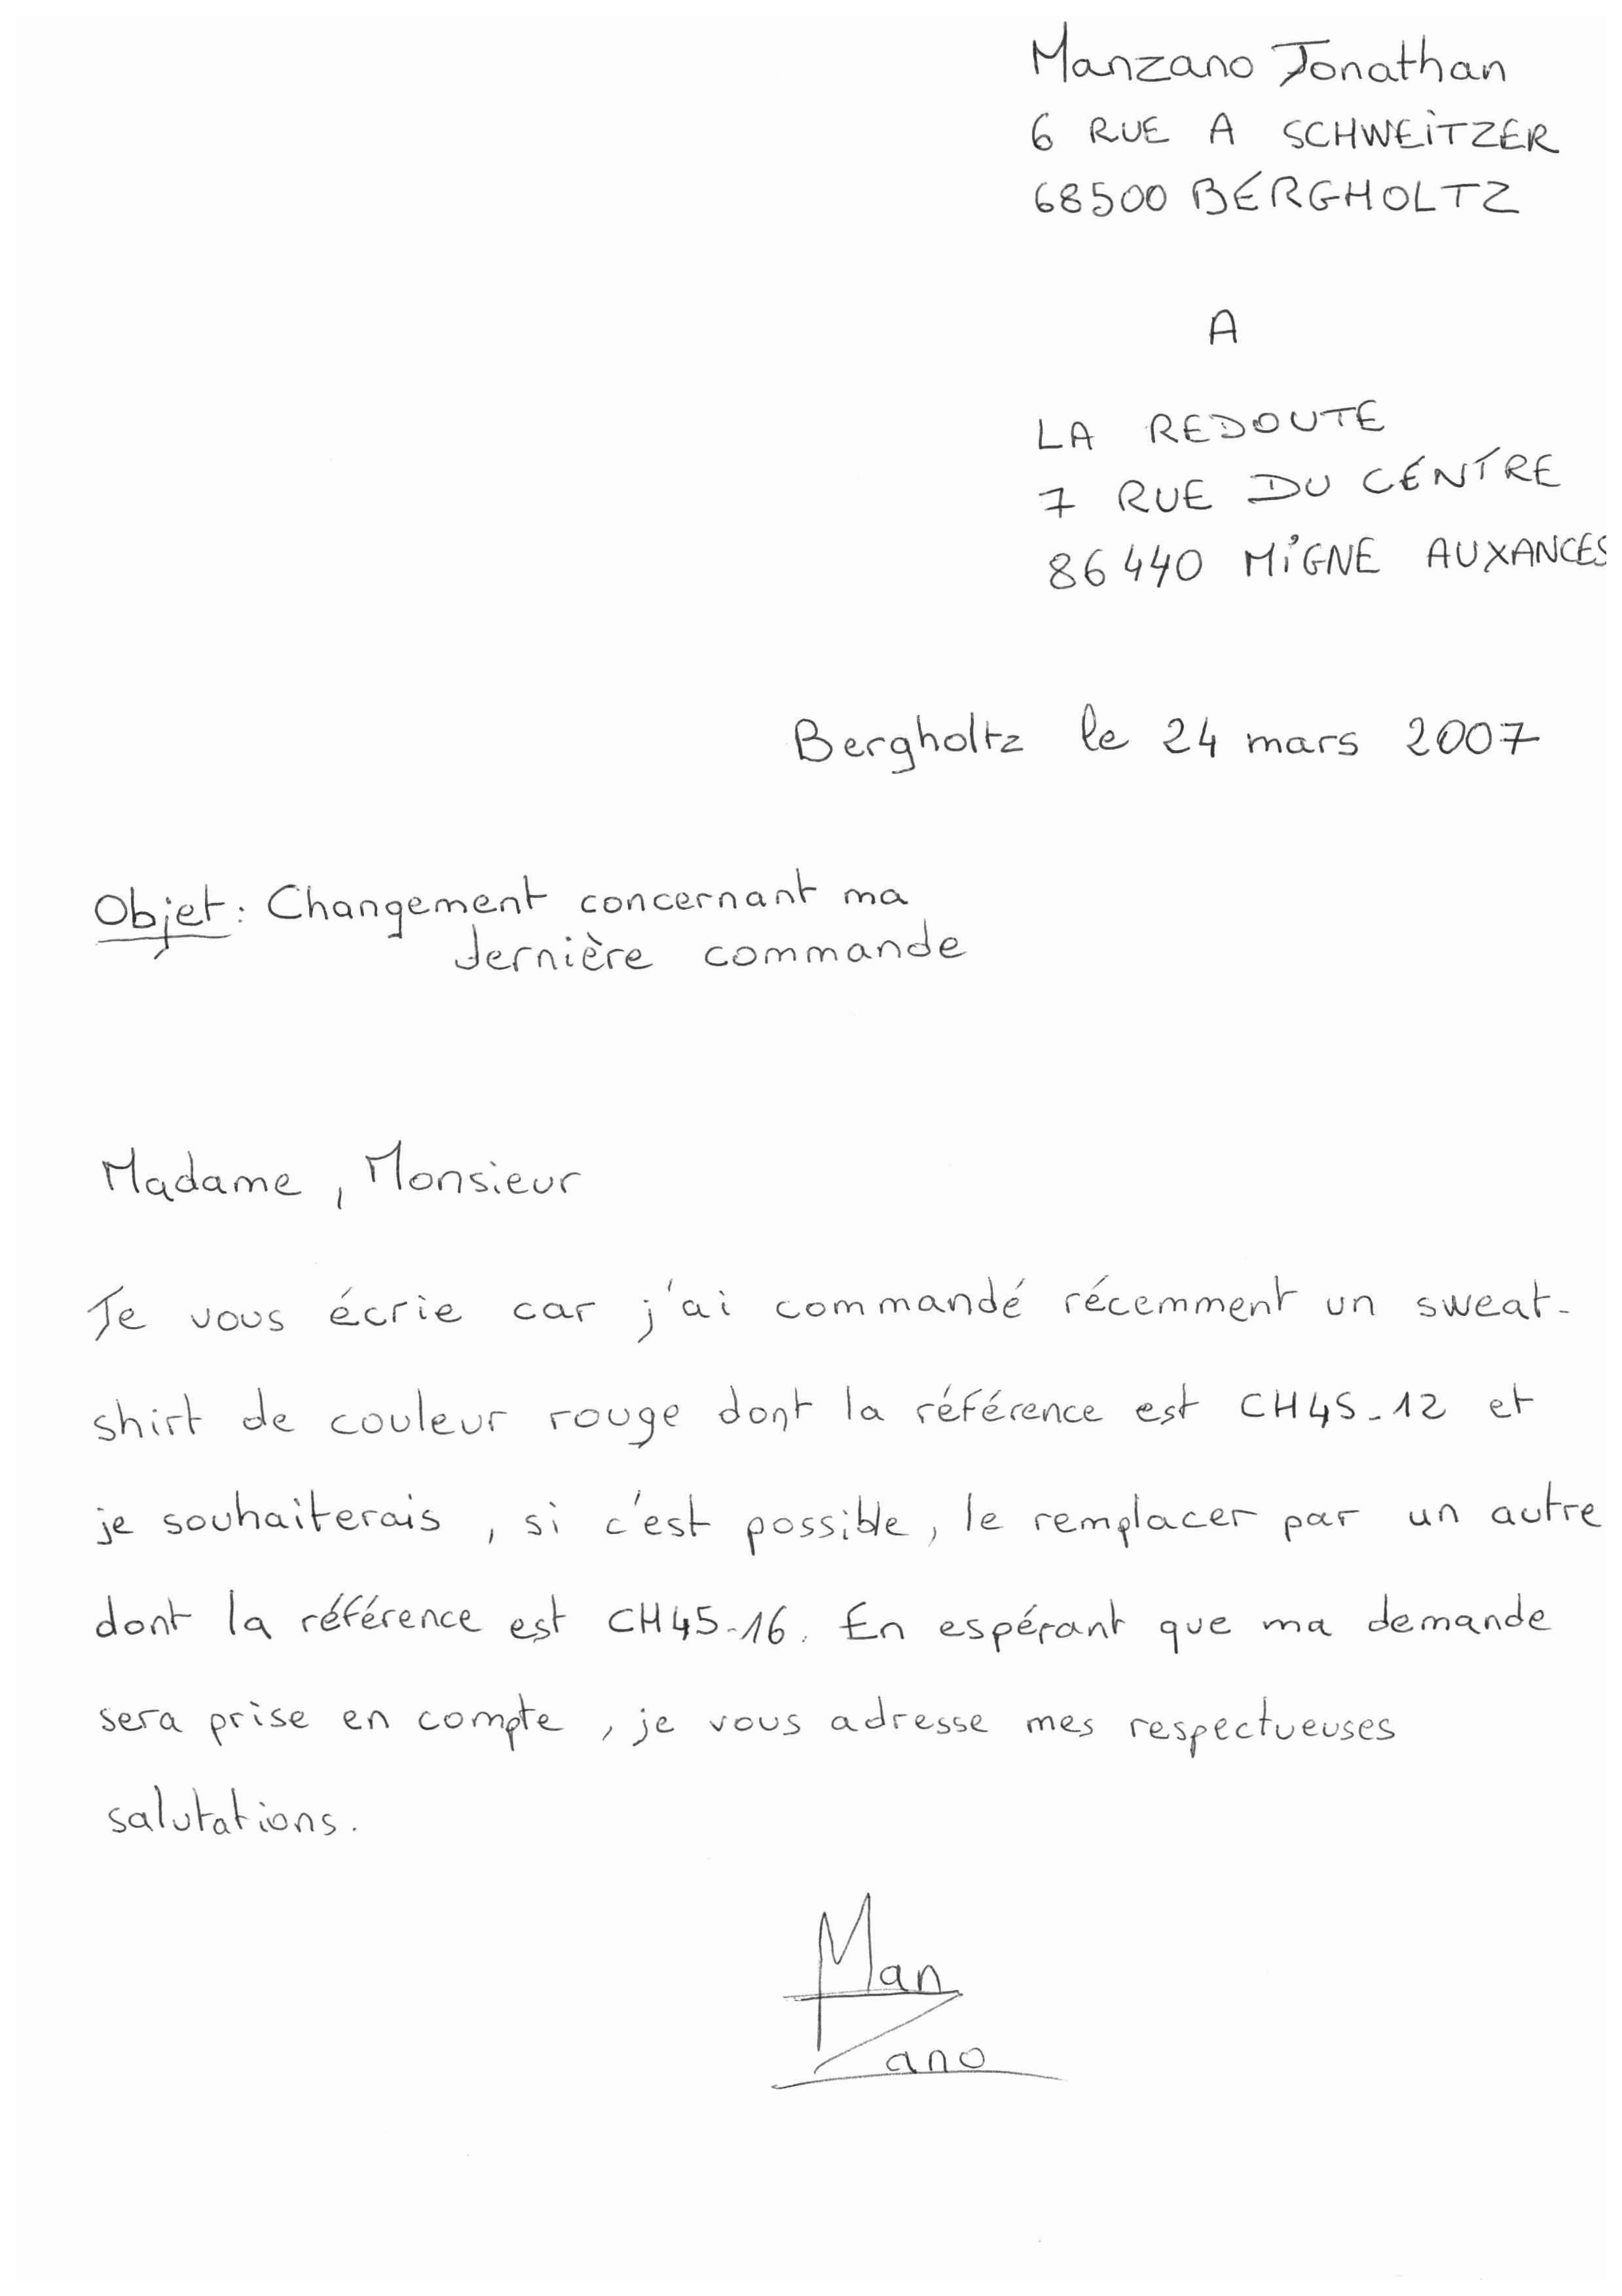 Manzano Jonathan
6 RUE A SCHWEiTZER
68500 BERGHOLTZ
A
LA REDOUTE
7 RUE DU CENTRE
86440 MiGNE AUXANCES
Bergholtz le 24 mars 2007
Objet : Changement concernant ma
dernière commande
Madame, Monsieur
Je vous écrie car j'ai commandé récemment un sweat-
shirt de couleur rouge dont la référence est CH45-12 et
je souhaiterais, si c'est possible, le remplacer par un autre
dont la référence est CH45-16. En espérant que ma demande
sera prise en compte, je vous adresse mes respectueuses
salutations.
Man
Zano